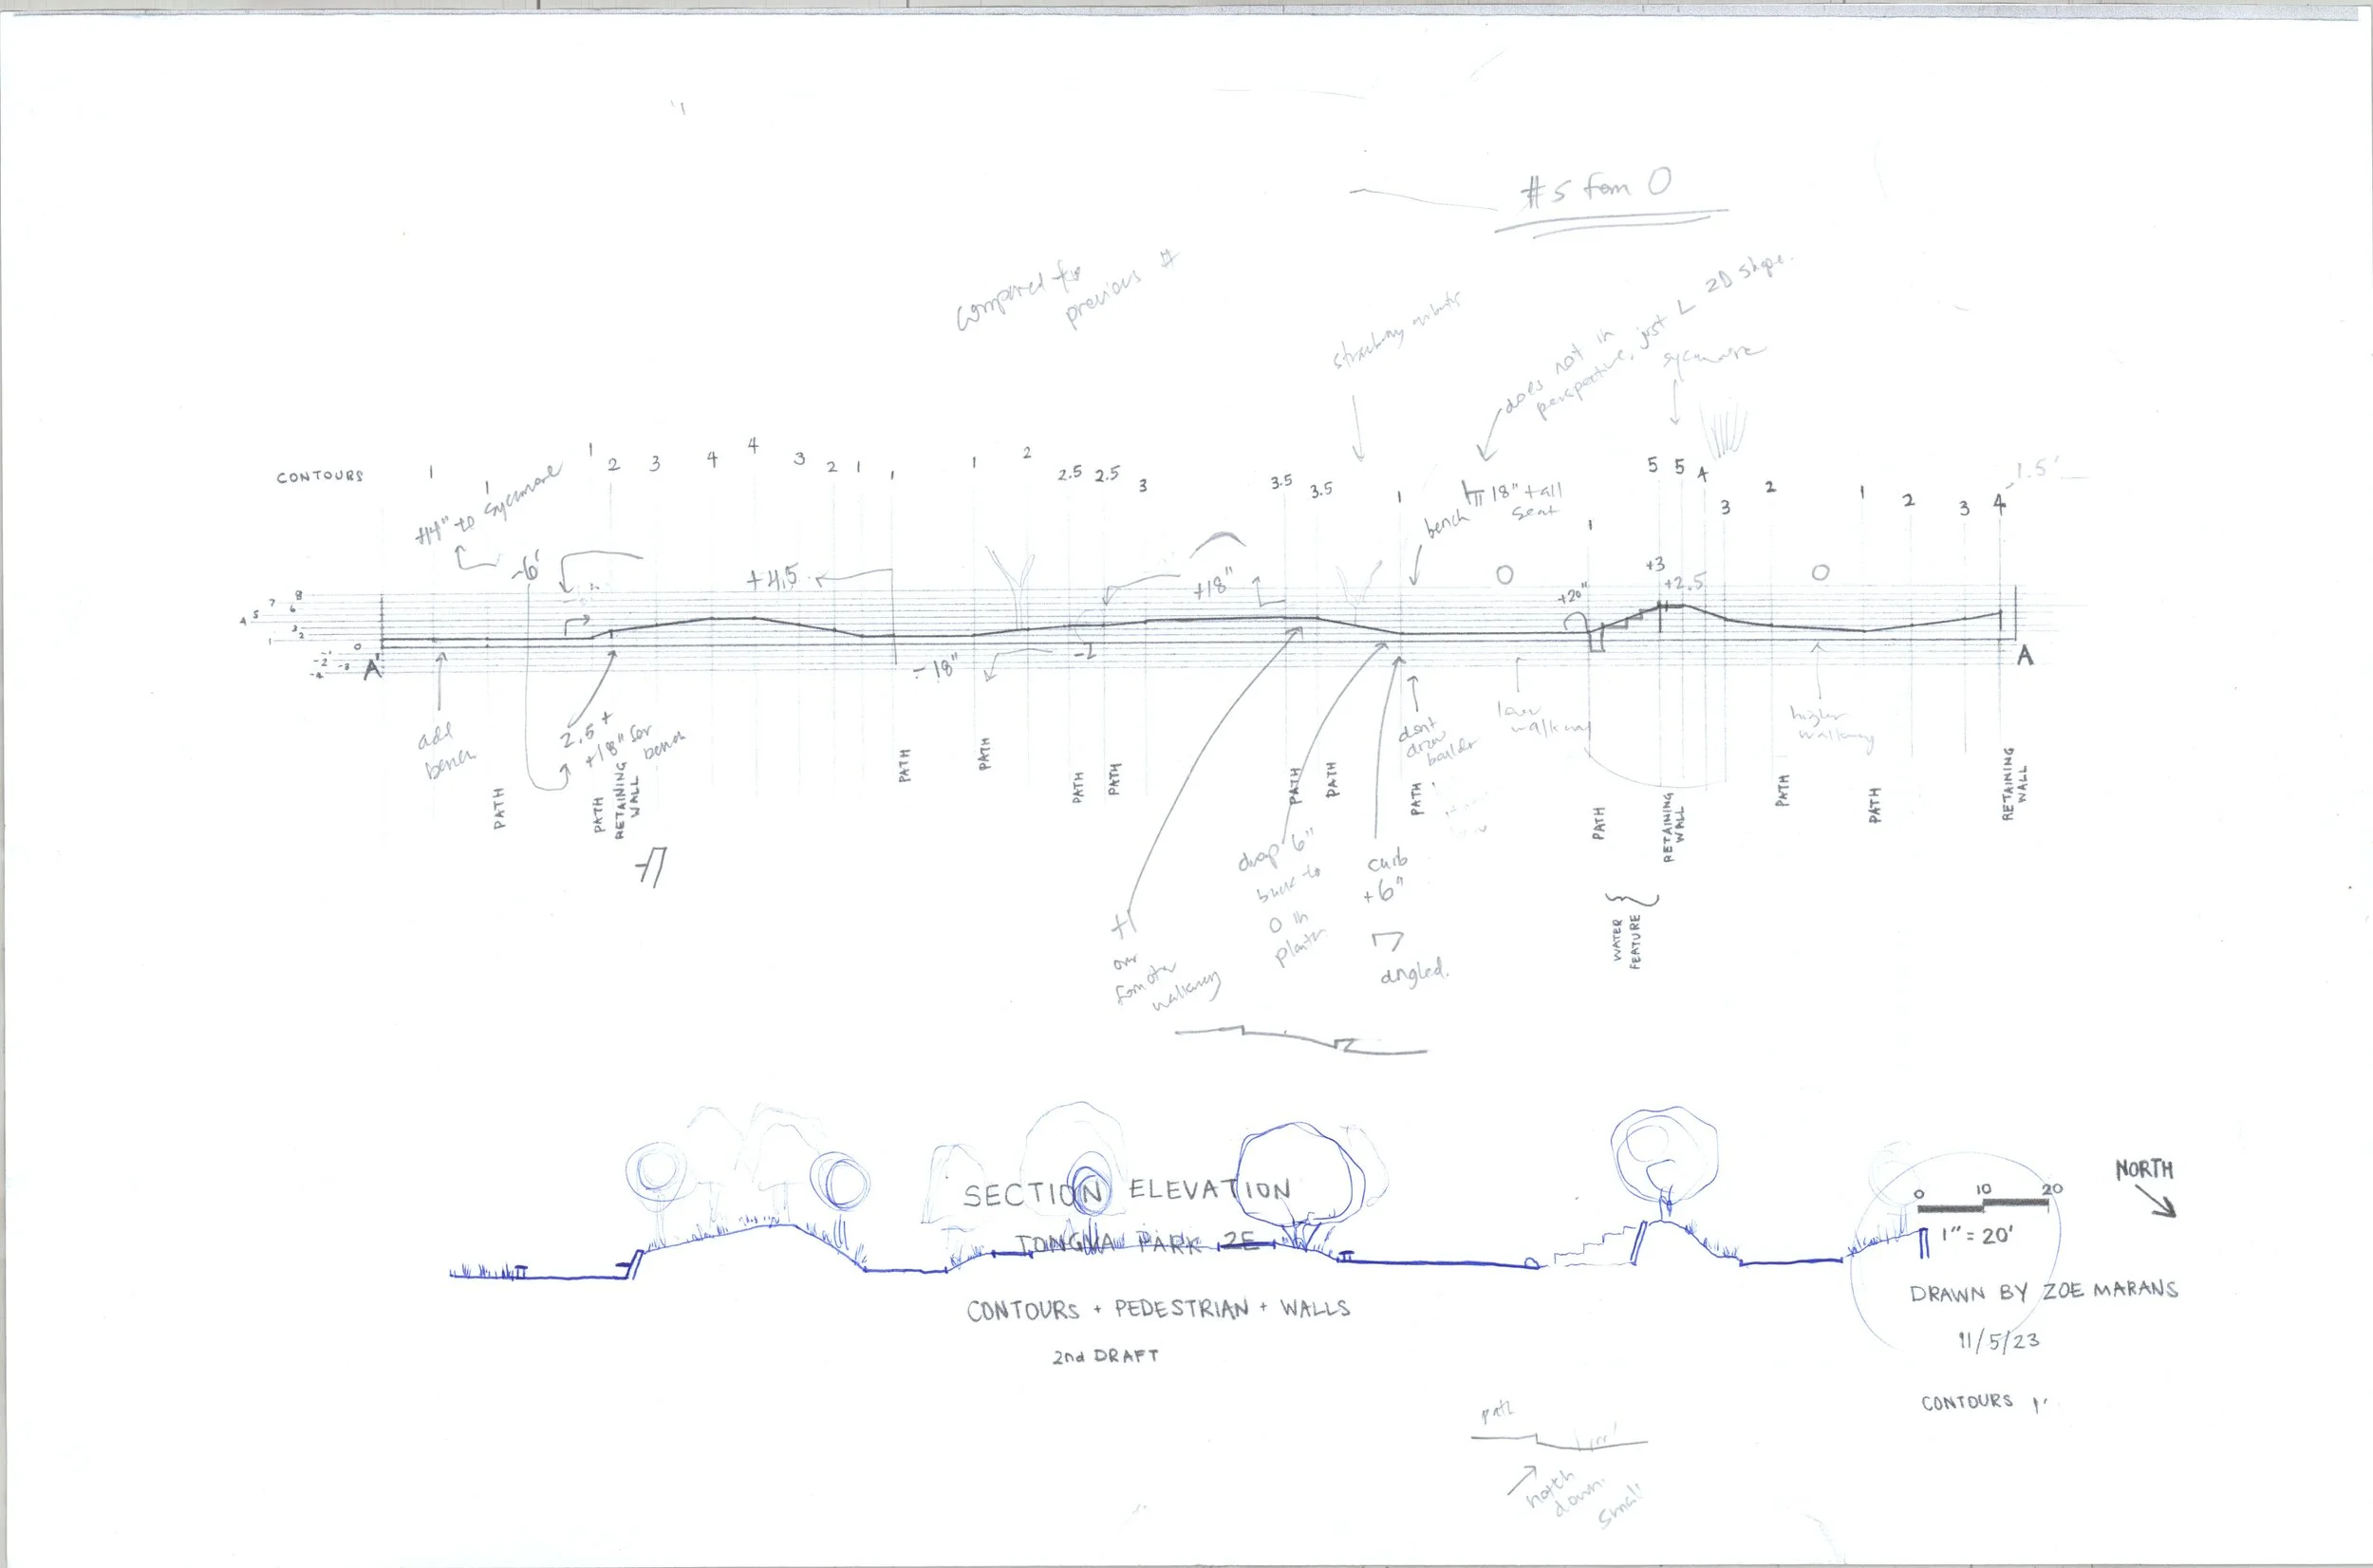 #s from 0
compared to
previous #
does not in
perspective, just L 2D shape.
sycamore
CONTOURS 1 1 1 2 3 4 4 3 2 1 1 1 2 2.5 2.5 3 3.5 3.5 1 1 5 5 4 3 2 1 2 3 4
1.5'
to sycamore
bench 18" tall
seat
-6'
+4.5
+18"
+20"
+3
+2.5
0
0
8
7 6
4 5
3
2
1
0
-1
-2 -3
-4
A'
A
-18"
-2
add
bench
2.5 +
+18" for
bench
don't
draw
boulder
lower
walkway
higher
walkway
PATH
PATH
RETAINING
WALL
PATH
PATH
PATH
PATH
PATH
PATH
PATH
PATH
RETAINING
WALL
PATH
PATH
RETAINING
WALL
WATER
FEATURE
drop 6"
back to
0 in
planter
curb
+6"
angled.
+1
over
from other
walkway
SECTION ELEVATION
TONGVA PARK 2E
CONTOURS + PEDESTRIAN + WALLS
2nd DRAFT
NORTH
0 10 20
1" = 20'
DRAWN BY ZOE MARANS
11/5/23
CONTOURS 1'
path
notch
down.
small